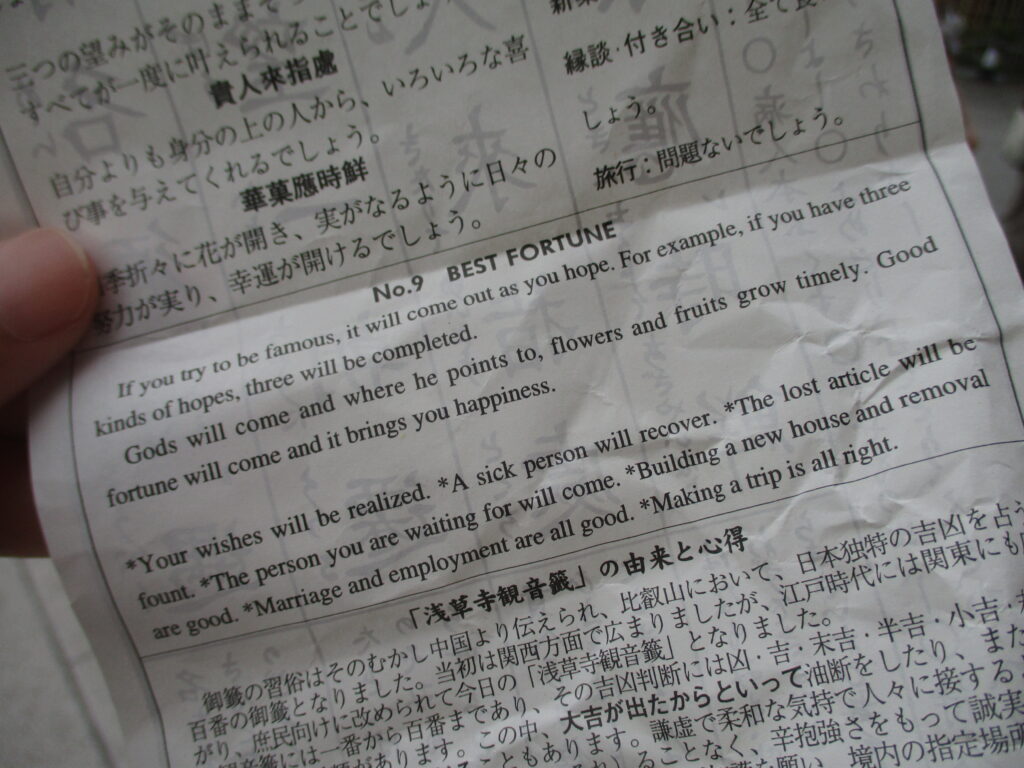 三つの望みがそのまま
すべてが一度に叶えられることでしょ
貴人來指處
自分よりも身分の上の人から、いろいろな喜
び事を与えてくれるでしょう。
華菓應時鮮
季折々に花が開き、実がなるように日々の
努力が実り、幸運が開けるでしょう。
縁談・付き合い：全て良
しょう。
旅行：問題ないでしょう。
No.9 BEST FORTUNE
If you try to be famous, it will come out as you hope. For example, if you have three
kinds of hopes, three will be completed.
Gods will come and where he points to, flowers and fruits grow timely. Good
fortune will come and it brings you happiness.
*Your wishes will be realized. *A sick person will recover. *The lost article will be
fount. *The person you are waiting for will come. *Building a new house and removal
are good. *Marriage and employment are all good. *Making a trip is all right.
「浅草寺観音籤」の由来と心得
御籤の習俗はそのむかし中国より伝えられ、比叡山において、日本独特の吉凶を占う
百番の御籤となりました。当初は関西方面で広まりましたが、江戸時代には関東にも
がり、庶民向けに改められて今日の「浅草寺観音籤」となりました。
観音籤には一番から百番まであり、その吉凶判断には凶・吉・末吉・半吉・小吉・
があります。この中、大吉が出たからといって油断をしたり、また
こともあります。謙虚で柔和な気持で人々に接する
ることなく、辛抱強さをもって誠実
願い、境内の指定場所